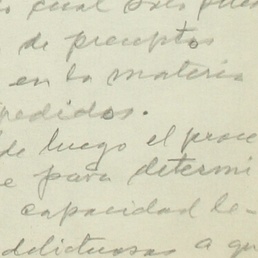 cual solo pue
de preceptos
en la materia
pedidos.
de luego el proce
e para determi
capacidad le-
delictuosas a qu